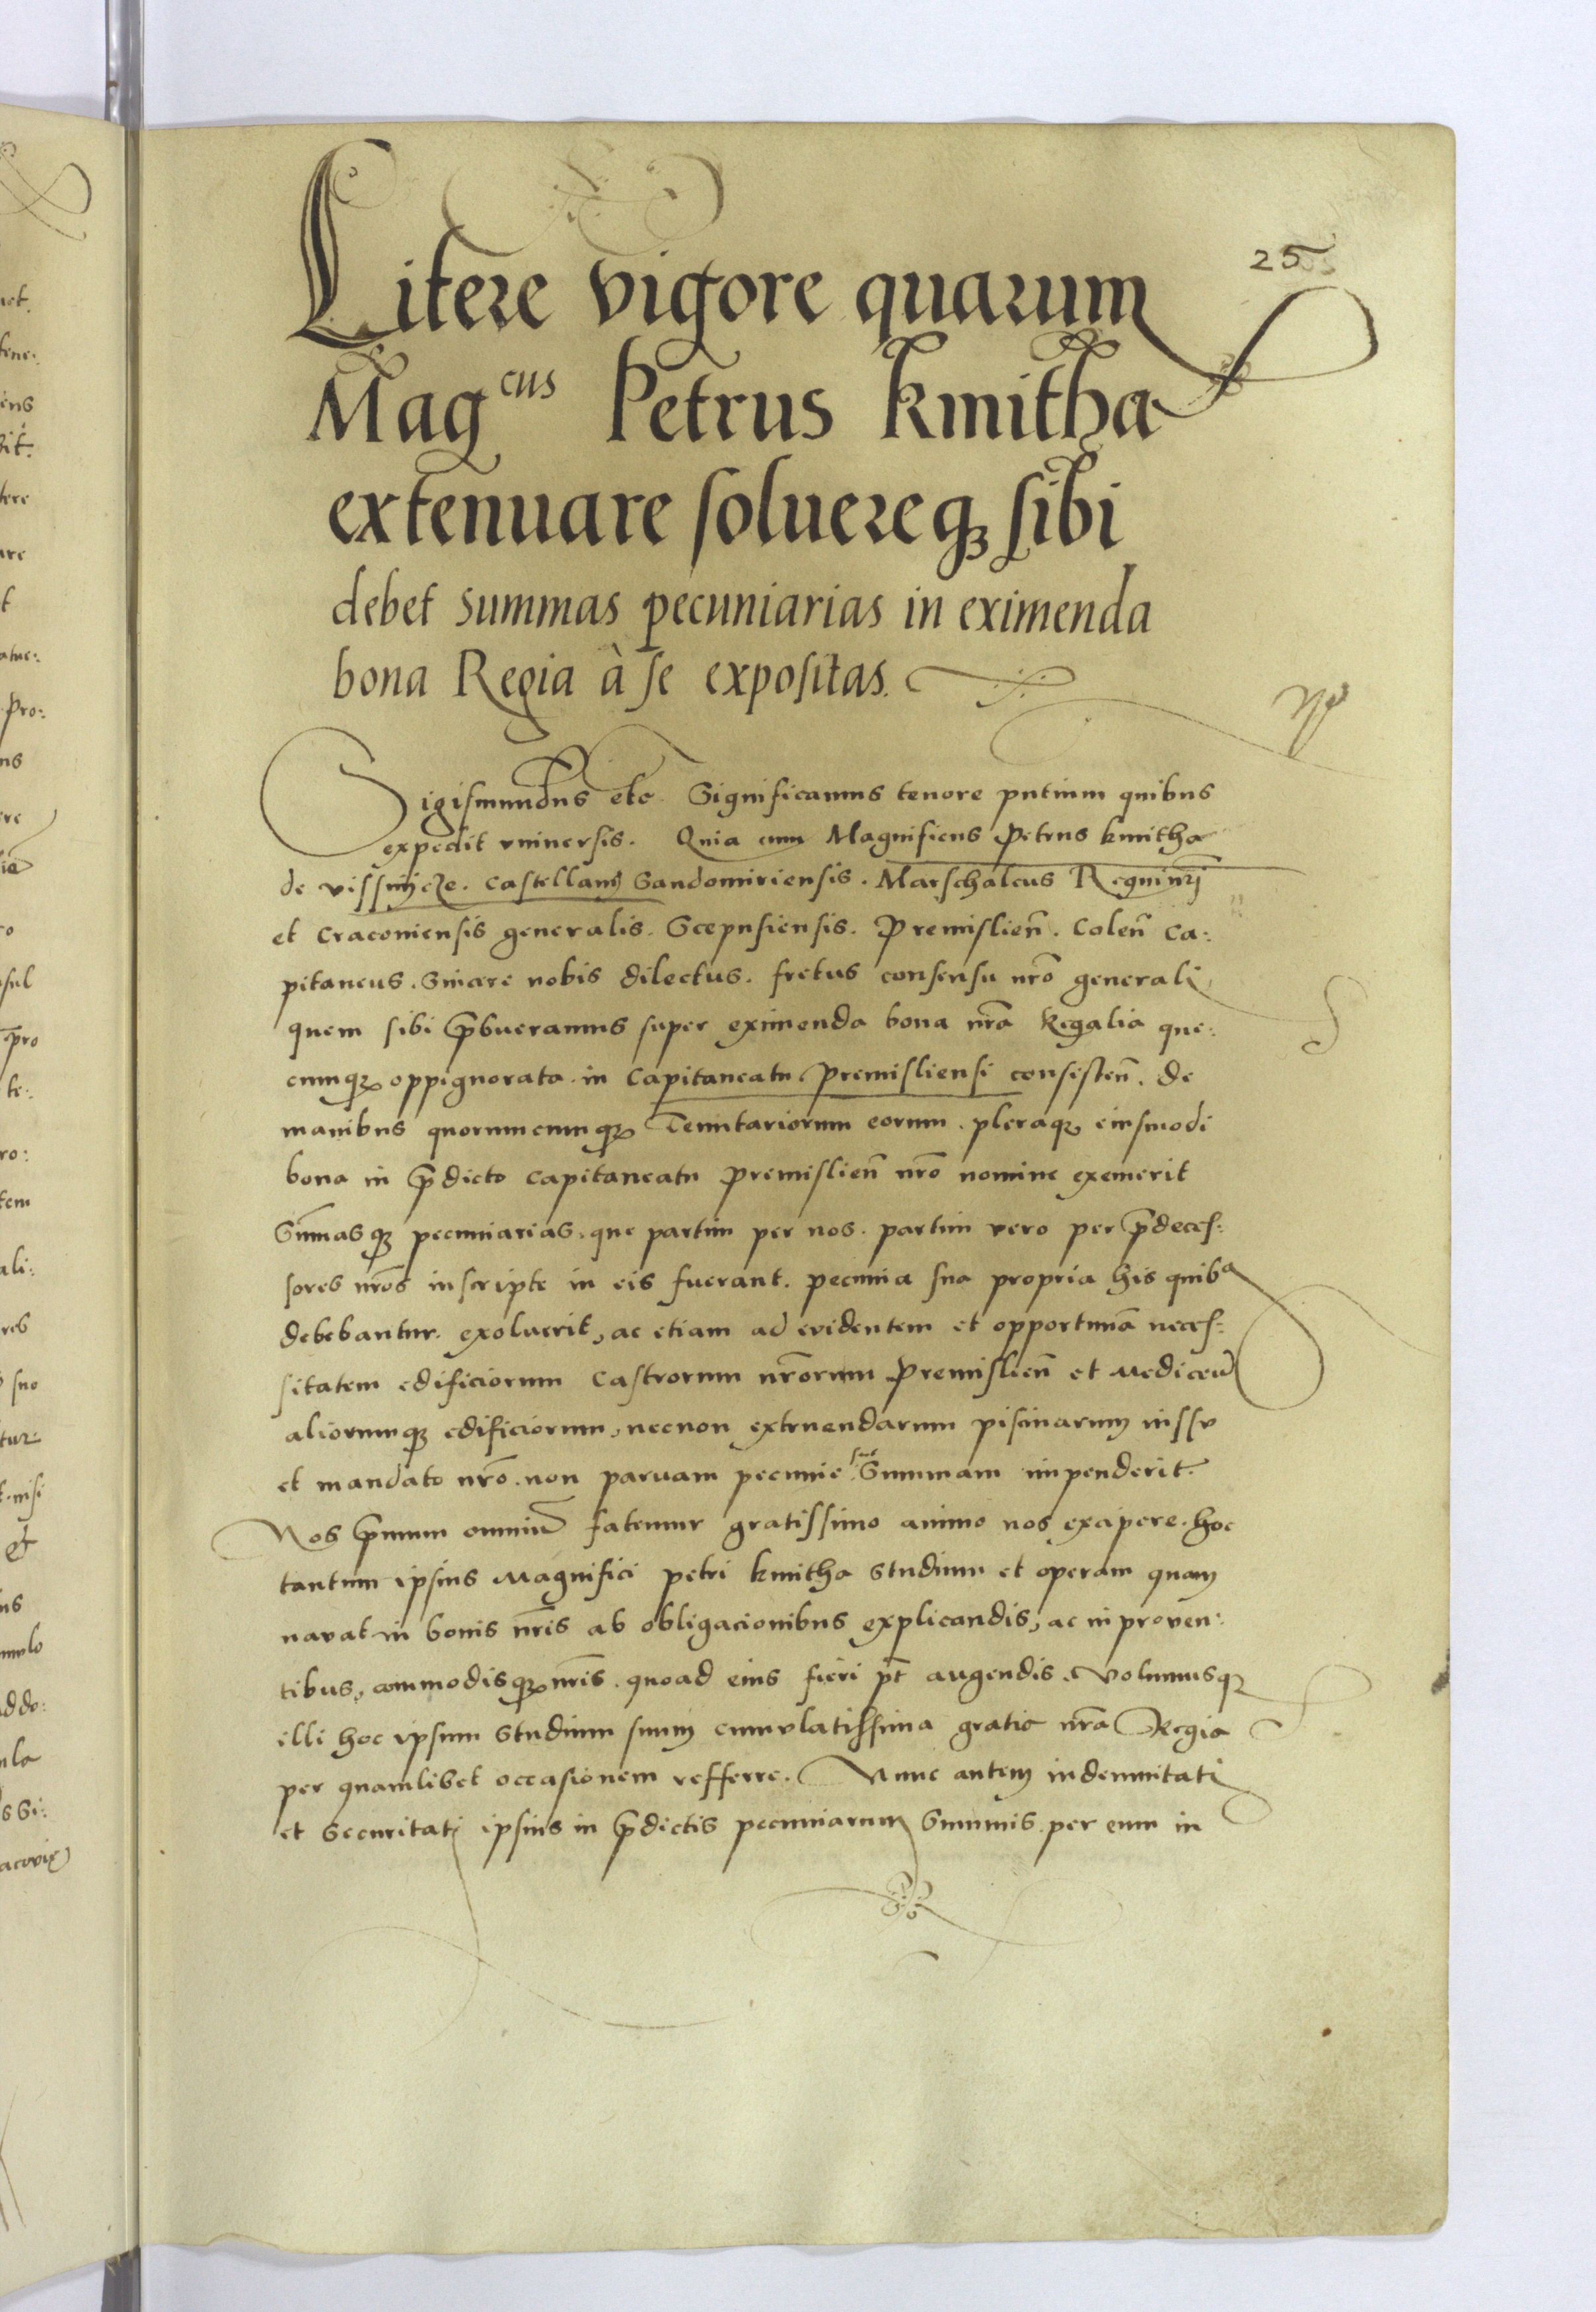 25
Litere vigore quarum
Mag^cus Petrus kmitha
extenuare soluereqꝫ sibi
debet summas pecuniarias in eximenda
bona Regia à se expositas.
Sigismundus etc. Significamus tenore pntium quibus
expedit vniuersis. Quia cum Magnificus Petrus kmitha
de vissnycze. Castellanꝯ Sandomiriensis. Marschalcus Regni nri
et Cracouiensis generalis. Scepusiensis. Premislien̄. Colen̄ Ca:
pitaneus. Sincere nobis dilectus. fretus consensu nr̄o generali
quem sibi p̄bueramus super eximenda bona nr̄a Regalia que:
cunqꝫ oppignorata in Capitaneatu Premisliensi consisten̄. de
manibus quorumcumqꝫ Tenutariorum eorum. pleraqꝫ eiusmodi
bona in p̄dicto Capitaneatu Premislien̄ nr̄o nomine exemerit
Sum̄asqꝫ pecuniarias. que partim per nos. partim vero per p̄deces:
sores nr̄os inscripte in eis fuerant. pecunia sua propria his quibꝯ
debebantur. exoluerit, ac etiam ad euidentem et opportunā neces:
sitatem edificiorum Castrorum nr̄orum Premislien̄ et Medicen̄
aliorumqꝫ edificiorum, necnon extruendarum piscinarum iussu
et mandato nr̄o. non paruam pecunie suę Summam impenderit.
Nos p̄mum omniū fatemur gratissimo animo nos excipere. hoc
tantum ipsius Magnifici petri kmitha studium et operam quam
nauat in bonis nr̄is ab obligacionibus explicandis, ac in prouen:
tibus, commodisqꝫ nr̄is. quoad eius fieri pt̄ augendis. Volumusqꝫ
illi hoc ipsum studium suum cumulatissima gratia nr̄a Regia
per quamlibet occasionem refferre. Nunc autem indemnitati
et securitati ipsius in p̄dictis pecuniarum Summis per eum in